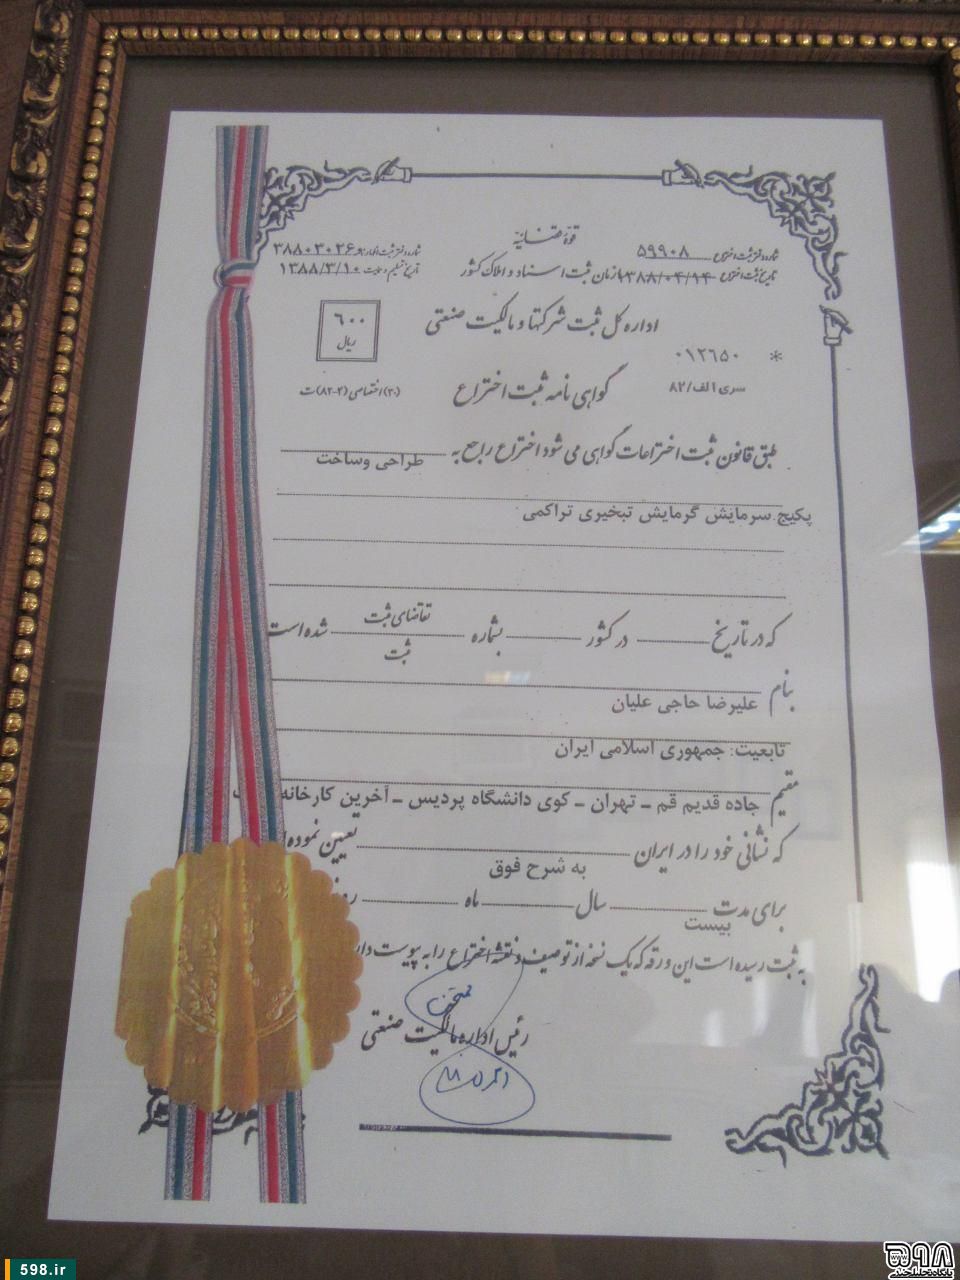 قوه قضائیه
شماره ثبت اختراع ۵۹۹۰۸
شماره دفتر ثبت اظهارنامه ۳۸۸۰۳۰۲۶
تاریخ ثبت اختراع ۱۳۸۸/۰۴/۱۴
سازمان ثبت اسناد و املاک کشور
۱۳۸۸/۳/۱۰
اداره کل ثبت شرکتها و مالکیت صنعتی
۶۰۰
ریال
* ۰۱۲٦۵۰
سری ۱ الف/۸۲
گواهی نامه ثبت اختراع
(۳۰) اختصاصی (۲-۸۲) ت
طبق قانون ثبت اختراعات گواهی می شود اختراع راجع به طراحی وساخت
پکیج سرمایش گرمایش تبخیری تراکمی
که در تاریخ در کشور بشماره تقاضای ثبت
ثبت شده است
بنام علیرضا حاجی علیان
تابعیت: جمهوری اسلامی ایران
مقیم جاده قدیم قم - تهران - کوی دانشگاه پردیس - آخرین کارخانه
که نشانی خود را در ایران به شرح فوق تعیین نموده
برای مدت بیست سال ماه
به ثبت رسیده است این ورقه که یک نسخه از توصیف و نقشه اختراع را به پیوست
رئیس اداره مالکیت صنعتی
598.ir